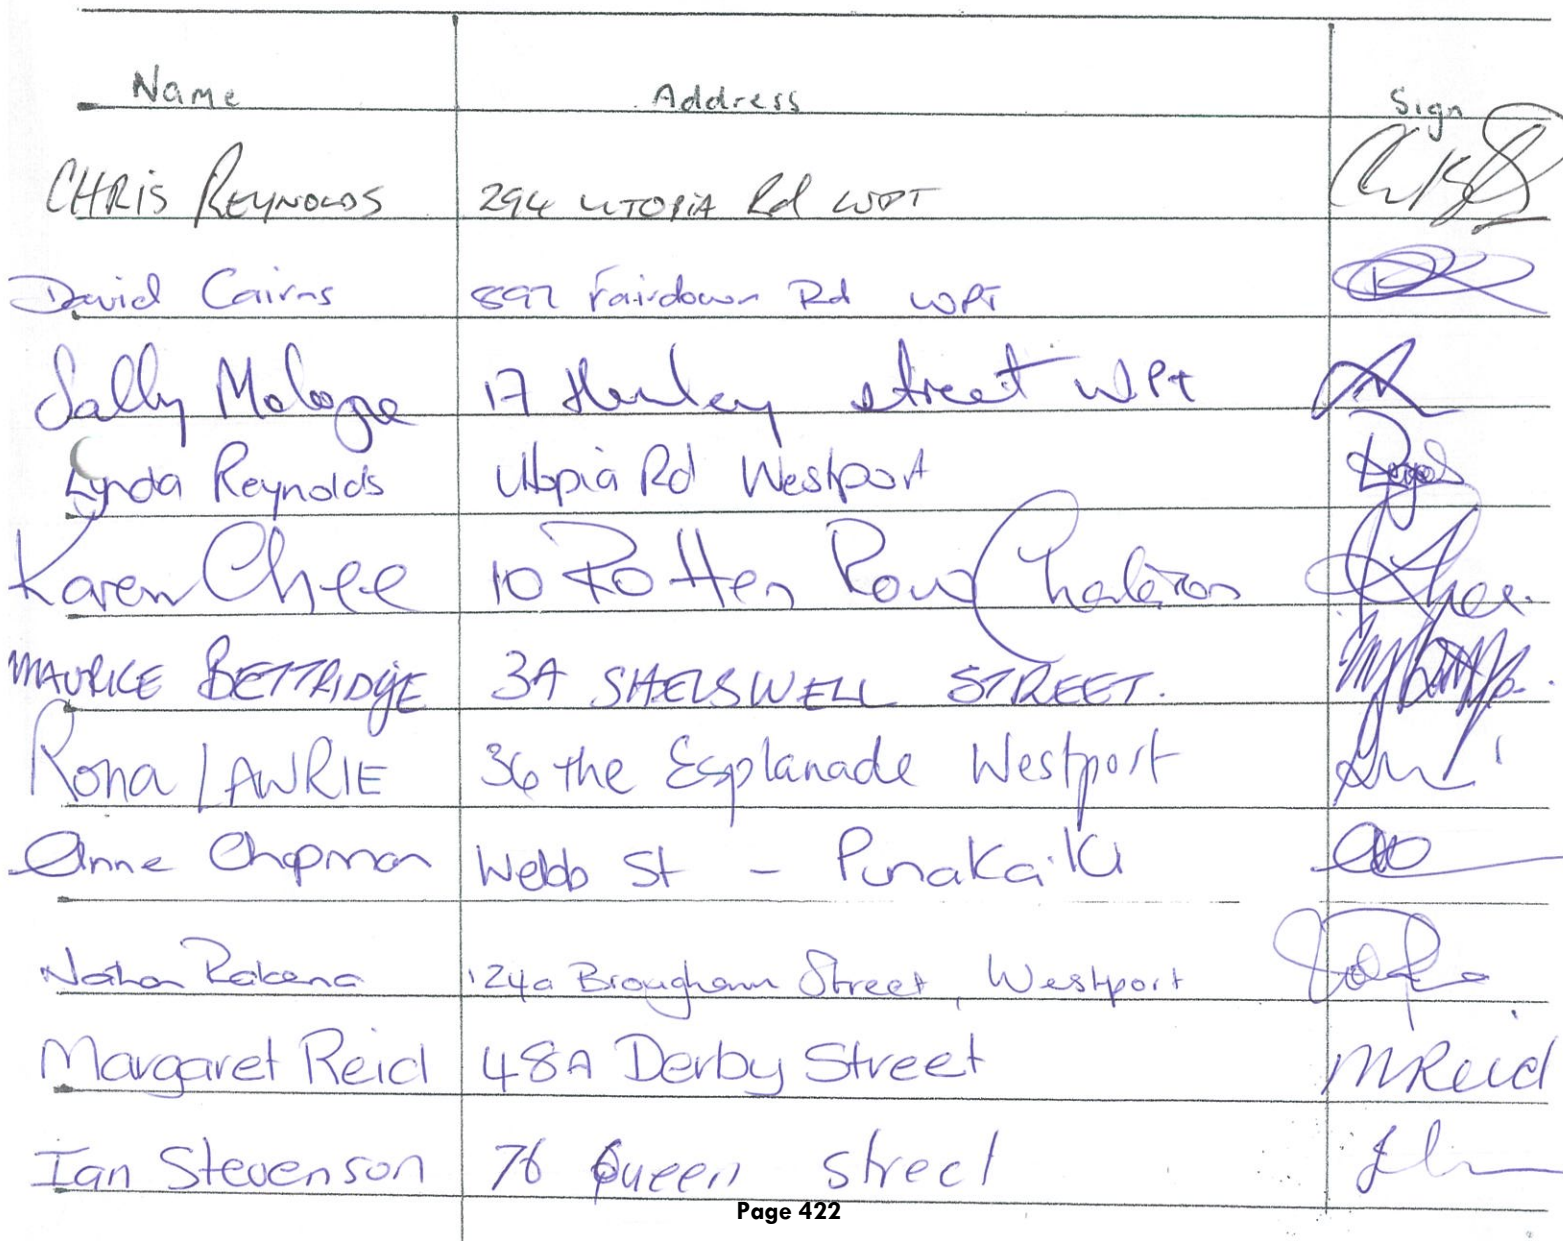 Name Address Sign
CHRIS REYNOLDS 294 UTOPIA Rd WPT
David Cairns 897 Fairdown Rd WPT
Sally 17 Henley street WPt
Lynda Reynolds Utopia Rd Westport
Karen Chee 10 Rotten Row Charleston
MAURICE BETTRIDGE 3A SHELSWELL STREET.
Rona LAWRIE 36 the Esplanade Westport
Anne Chapman Webb St - Punakaiki
Nathan Rakena 124a Brougham Street, Westport
Margaret Reid 48A Derby Street MReid
Ian Stevenson 76 Queen street
Page 422